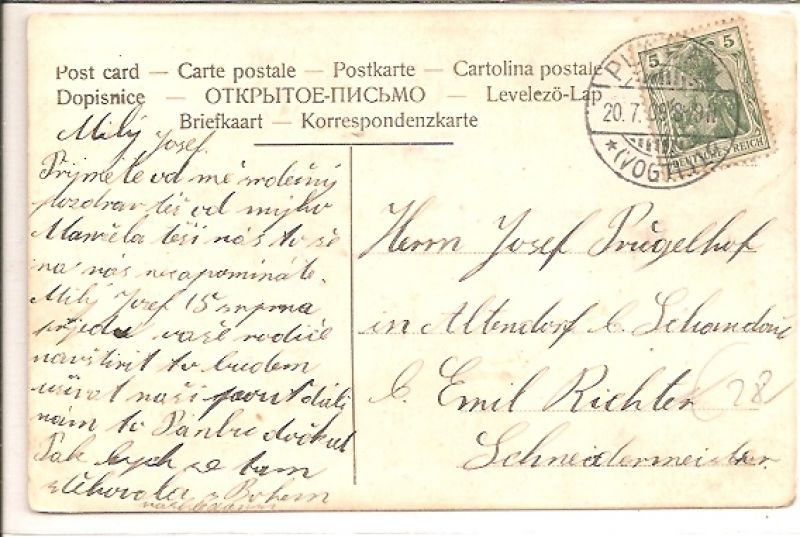 Post card — Carte postale — Postkarte — Cartolina postale
Dopisnice — ОТКРЫТОЕ-ПИСЬМО — Levelezö-Lap
Briefkaart — Korrespondenzkarte
5 5
DEUTSCHES REICH
20.7.09
(VOGTL.)
Milý Josef.
Přijmete od mě srdečný
pozdrav též od mýho
Manžela těší nás to že
na nás nezapomínáte.
Milý Josef 15 srpna
přijedu vaše rodiče
navštívit to budem
užívat naši pout dáli
nám to Pánbu dočkat
Pak bych se tam
s Bohem
Herrn Josef Prügelhof
in Altendorf b. Schandau
b. Emil Richter
Schneidermeister
28